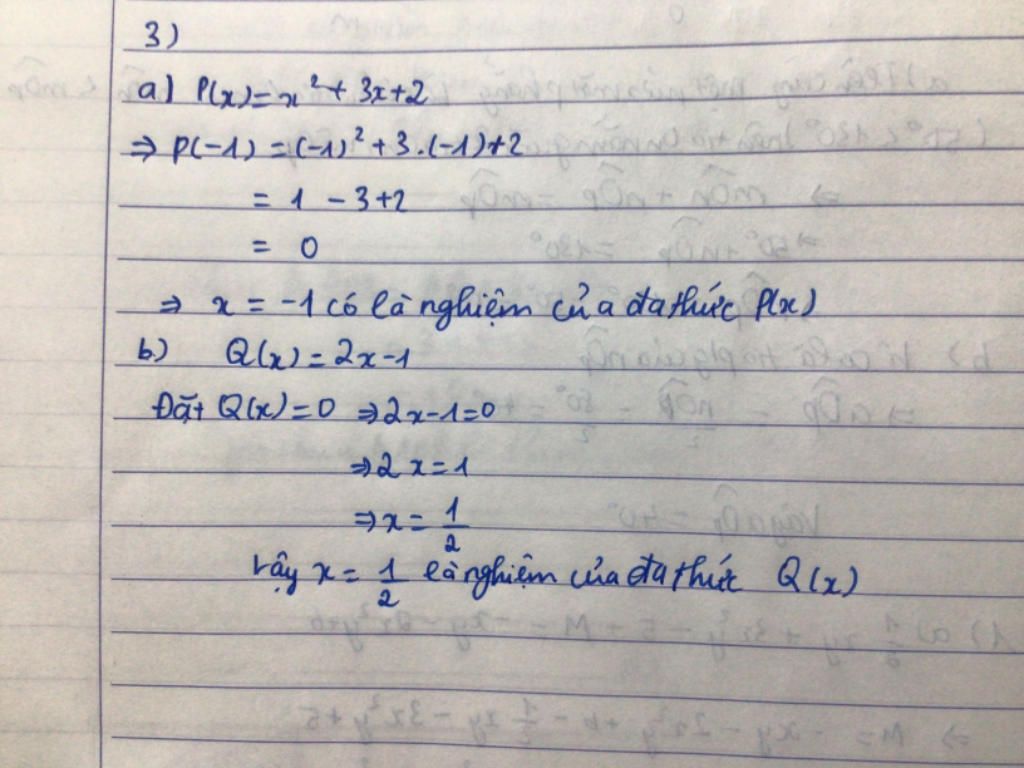 3)
a) P(x) = x² + 3x + 2
⇒ P(-1) = (-1)² + 3.(-1) + 2
= 1 - 3 + 2
= 0
⇒ x = -1 có là nghiệm của đa thức P(x)
b) Q(x) = 2x - 1
Đặt Q(x) = 0 ⇒ 2x - 1 = 0
⇒ 2x = 1
⇒ x = 1/2
Vậy x = 1/2 là nghiệm của đa thức Q(x)